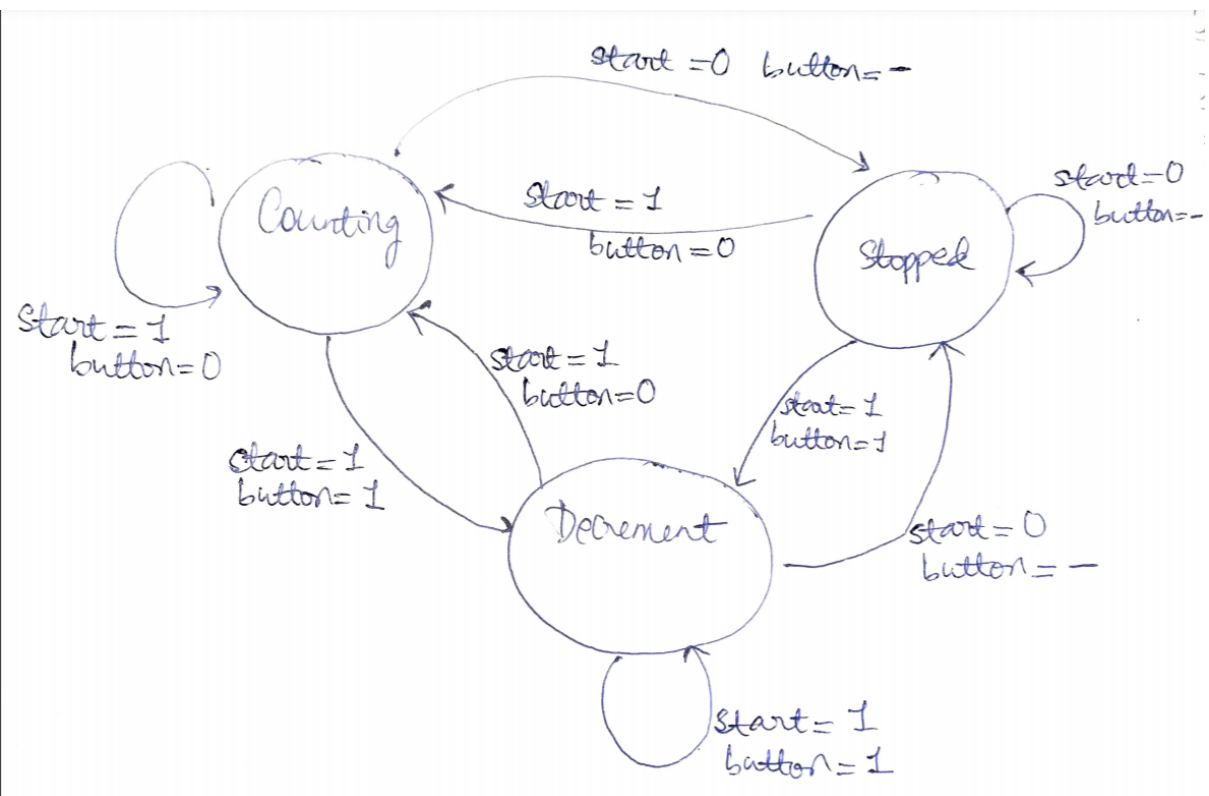 start =0 button= -
Counting
start = 1
button=0
Stopped
start=0
button=-
start = 1
button=0
start = 1
button=0
start= 1
button=1
start = 1
button= 1
Decrement
start= 0
button= -
start= 1
button= 1